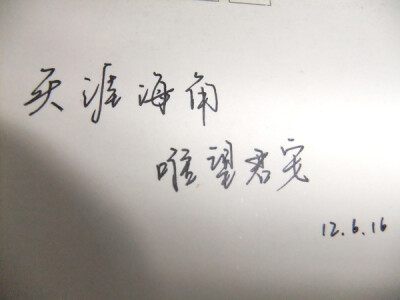 天涯海角
唯望君安
12.6.16